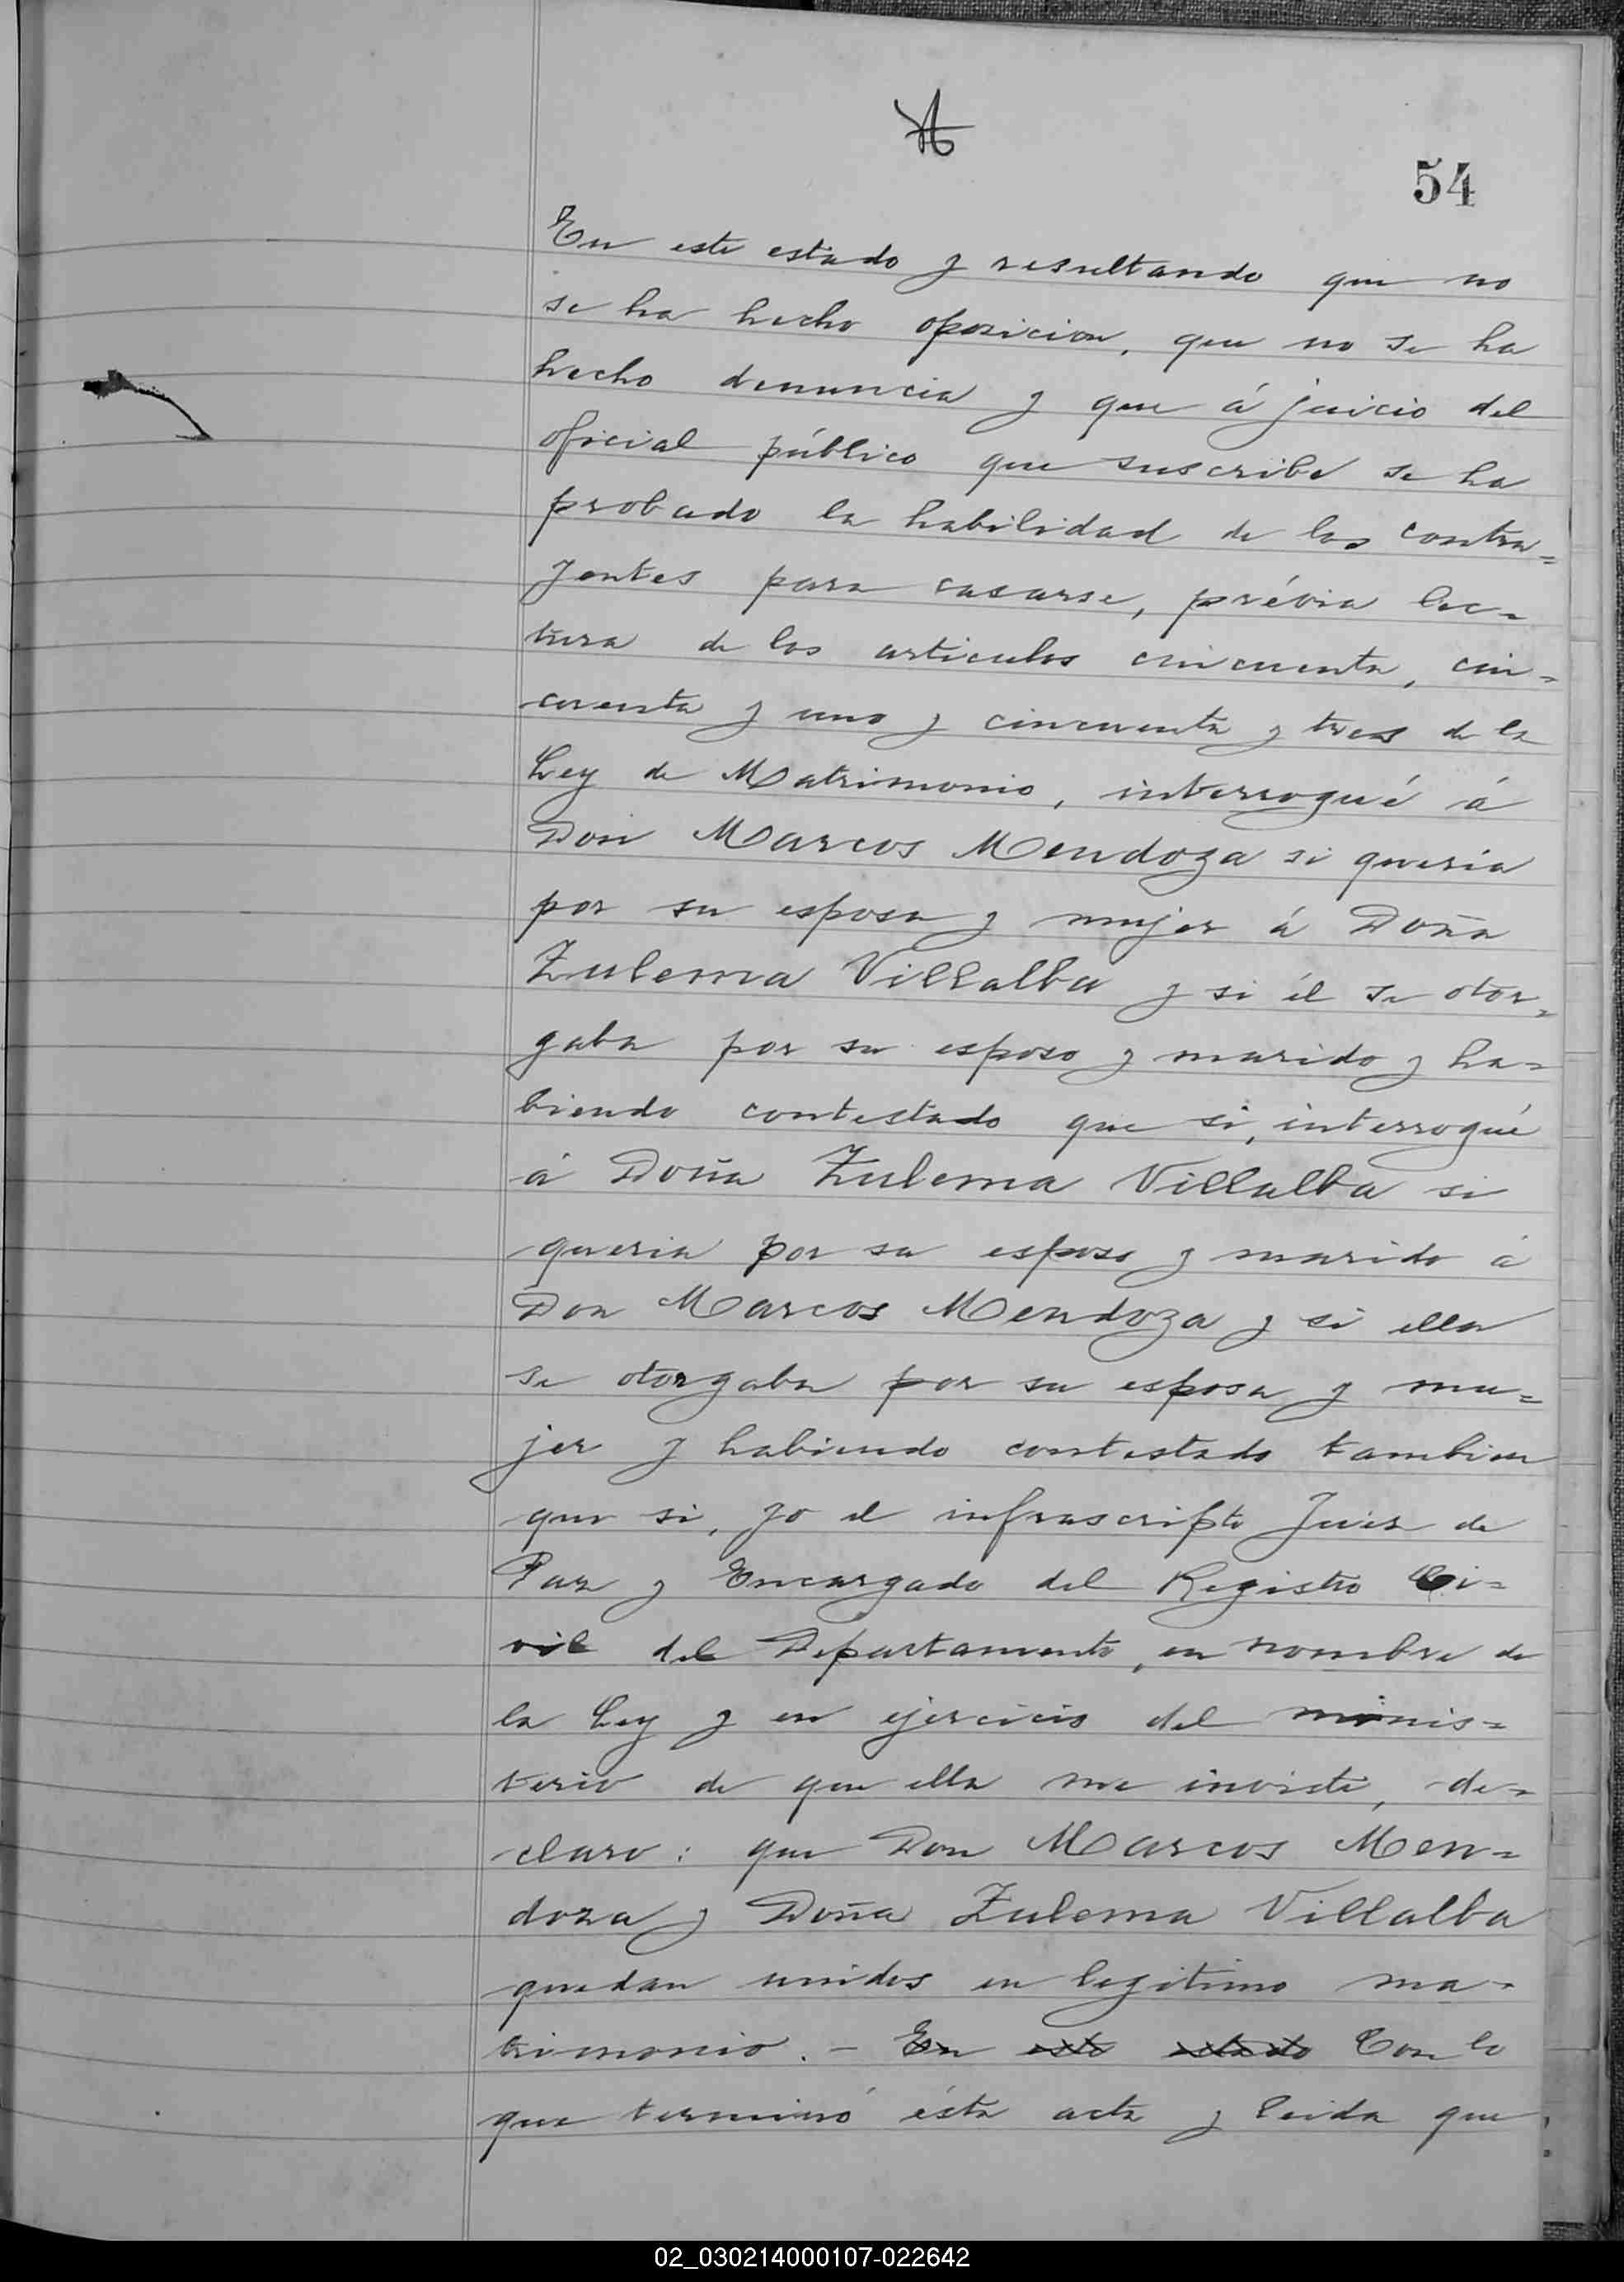 54
En este estado y resultando que no
se ha hecho oposicion, que no se ha
hecho denuncia y que á juicio del
oficial público que suscribe se ha
probado la habilidad de los contra=
yentes para casarse, prévia lec=
tura de los articulos cincuenta, cin=
cuenta y uno y cincuenta y tres de la
Ley de Matrimonio, interrogué á
Don Marcos Mendoza si queria
por su esposa y mujer á Doña
Zulema Villalba y si él se otor=
gaba por su esposo y marido y ha=
biendo contestado que si, interrogué
á Doña Zulema Villalba si
queria por su esposo y marido á
Don Marcos Mendoza y si ella
se otorgaba por su esposa y mu=
jer y habiendo contestado tambien
que si, yo el infrascripto Juez de
Paz y Encargado del Registro Ci=
vil del Departamento, en nombre de
la Ley y en ejercicio del minis=
terio de que ella me inviste, de=
claro: que Don Marcos Men=
doza y Doña Zulema Villalba
quedan unidos en legitimo ma=
trimonio. – En este estado Con lo
que terminó ésta acta y leida que
02_030214000107-022642